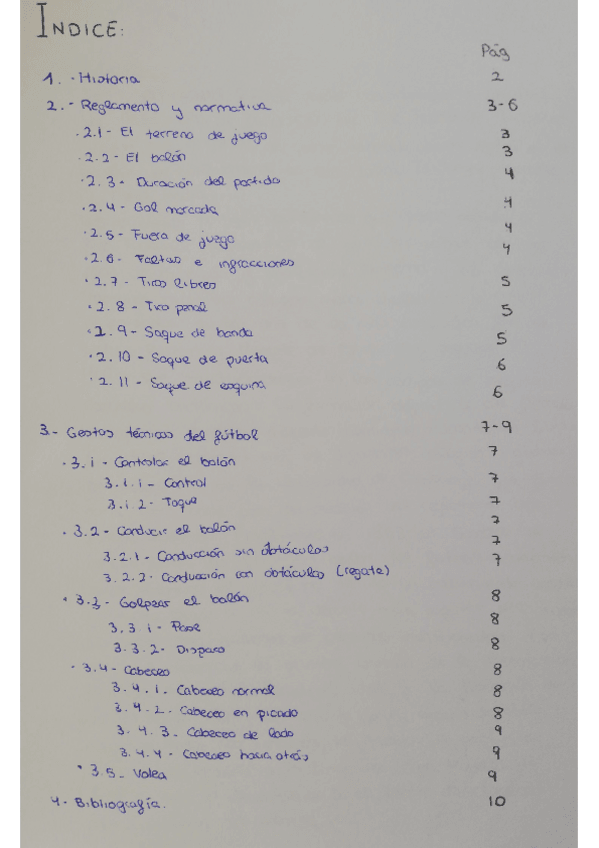 ÍNDICE:
Pág
1. - Historia 2
2. - Reglamento y normativa 3-6
· 2.1 - El terreno de juego 3
· 2.2 - El balón 3
· 2.3 - Duración del partido 4
· 2.4 - Gol marcado 4
· 2.5 - Fuera de juego 4
· 2.6 - Faltas e infracciones 4
· 2.7 - Tiros libres 5
· 2.8 - Tiro penal 5
· 2.9 - Saque de banda 5
· 2.10 - Saque de puerta 6
· 2.11 - Saque de esquina 6
3.- Gestos técnicos del fútbol 7-9
· 3.1 - Controlar el balón 7
3.1.1 - Control 7
3.1.2 - Toque 7
· 3.2 - Conducir el balón 7
3.2.1 - Conducción sin obstáculos 7
3.2.2. Conducción con obstáculos (regate) 7
· 3.3 - Golpear el balón 8
3.3.1 - Pase 8
3.3.2 - Disparo 8
· 3.4 - Cabeceo 8
3.4.1. Cabeceo normal 8
3.4.2. Cabeceo en picado 8
3.4.3. Cabeceo de lado 9
3.4.4 - Cabeceo hacia atrás 9
· 3.5 - Volea 9
4 - Bibliografía. 10